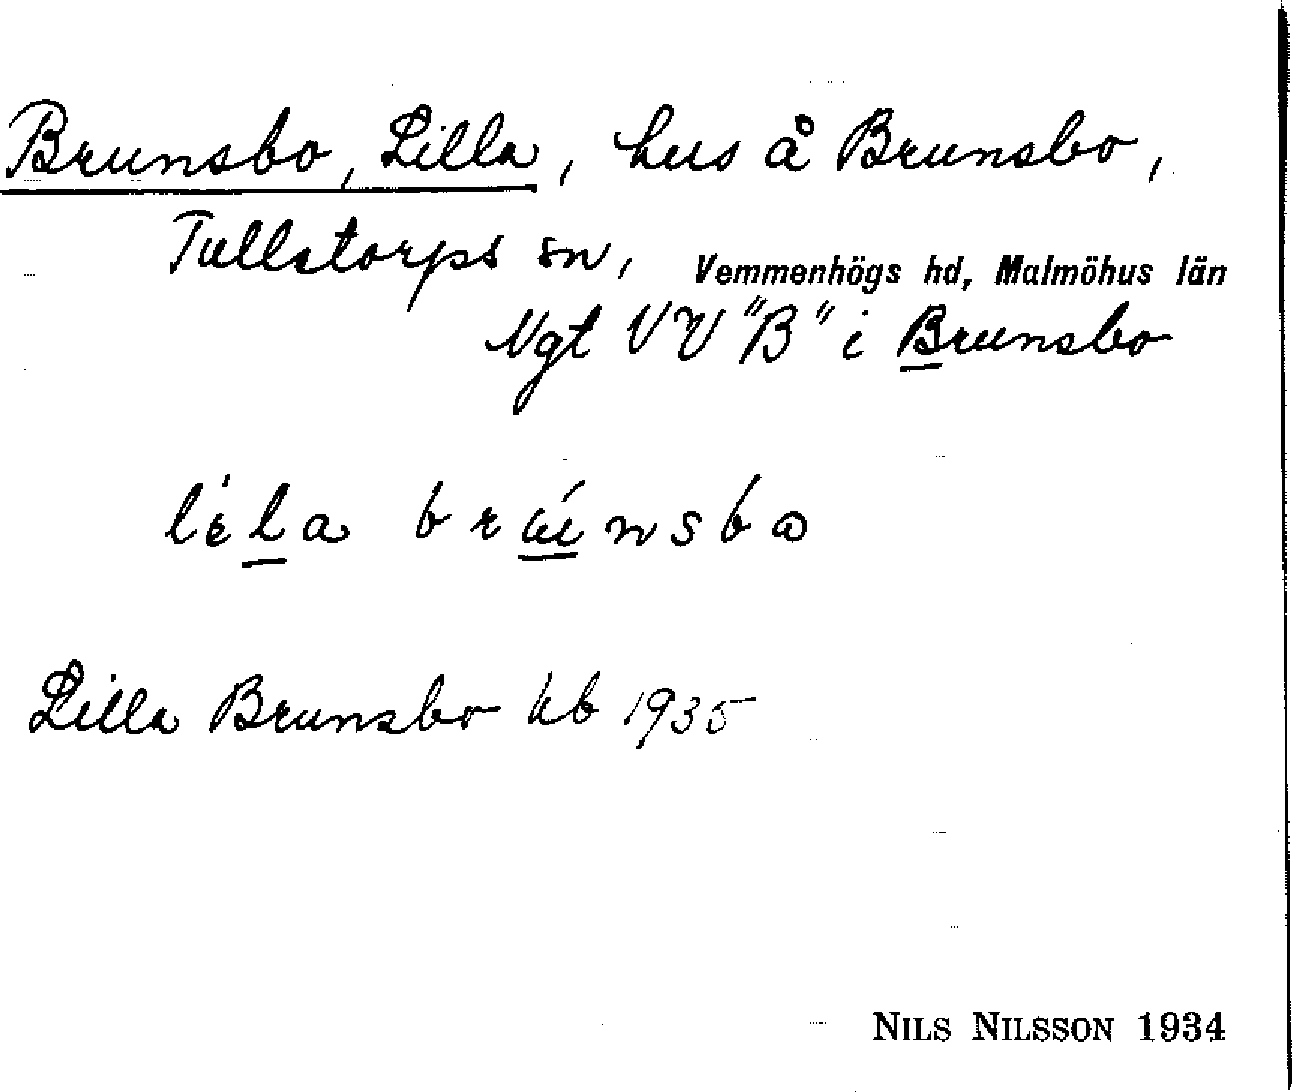 Brunsbo, Lilla, hus å Brunsbo,
Tullstorps sn, Vemmenhögs hd, Malmöhus län
Ngt VV "B" i Brunsbo
Lilla Brunsbo kb 1935
NILS NILSSON 1934